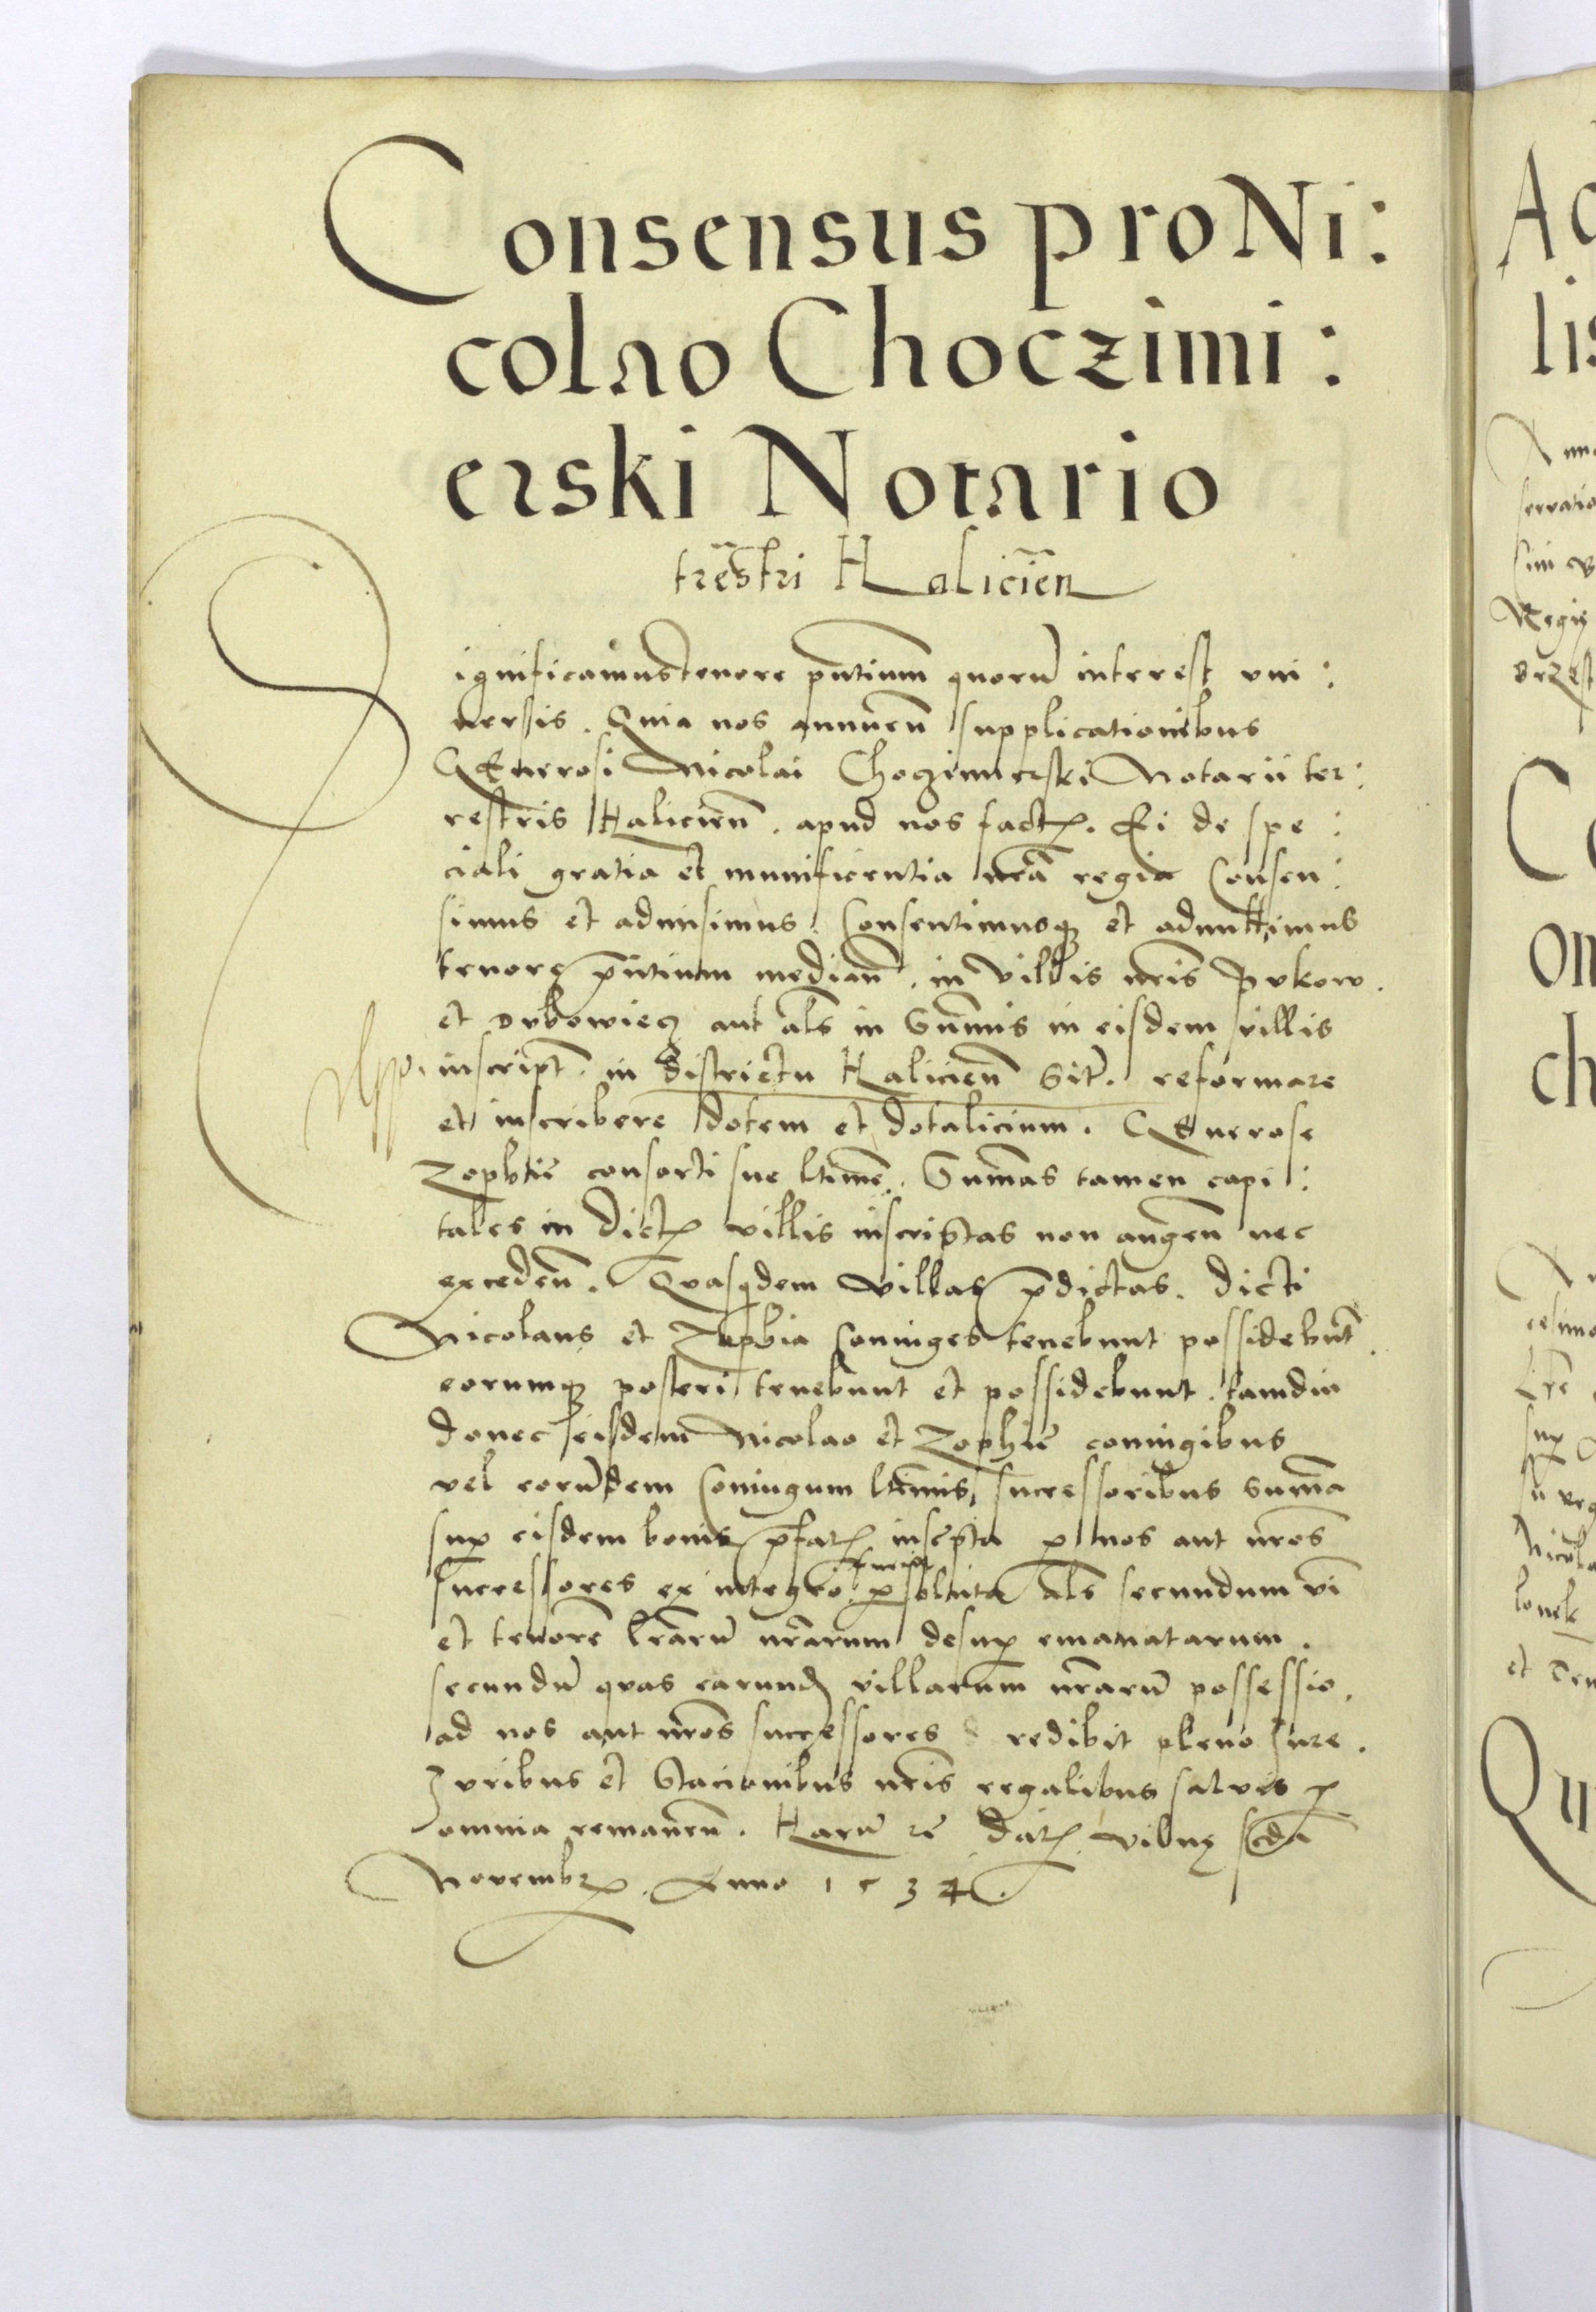 Consensus pro Ni:
colao Choczimi:
erski Notario
tr̄estri Halicień
Significamus tenore p̄ntium quorū interest vni:
uersis. Quia nos annueñ supplicationibus
Generosi Nicolai Choczimierski Notarii ter:
restris Halicieñ. apud nos fact. Ei de spe:
ciali gratia et munificentia nr̄a regia Consen:
simus et admisimus. Consentimusq et admittimus
tenore p̄ntium mediañ. in villis nr̄is Bukow.
et Dubowiecz aut al̄s in Sum̄is in eisdem villis
inscript. in districtu Halicieñ Sit. reformare
et inscribere dotem et dotalicium. Generose
Zophie consorti sue ltime. Sum̄as tamen capi:
tales in dict villis inscriptas non augeñ nec
excedeñ. Quasqdem villas p̄dictas. dicti
Nicolaus et Zophia Coniuges tenebunt possidebūt.
eorumq posteri tenebunt et possidebunt. tamdiu
donec eisdem Nicolao et Zophie coniugibus
vel eorūdem Coniugum ltimis, successoribus sum̄a
sup eisdem bonis p̄fat inscpta p nos aut nr̄os
Successores ex integro fuerit psoluta al̄s secundum vī
et tenorē lr̄arū nr̄arum desup emanatarum.
secundū quas earund villarum nr̄arū possessio.
ad nos aut nr̄os successores redibit pleno Iure.
Iuribus et Stacionibus nr̄is regalibus saluis p
omnia remaneñ. Harū rē dat vilnę scda
Novembr. Anno 1534.